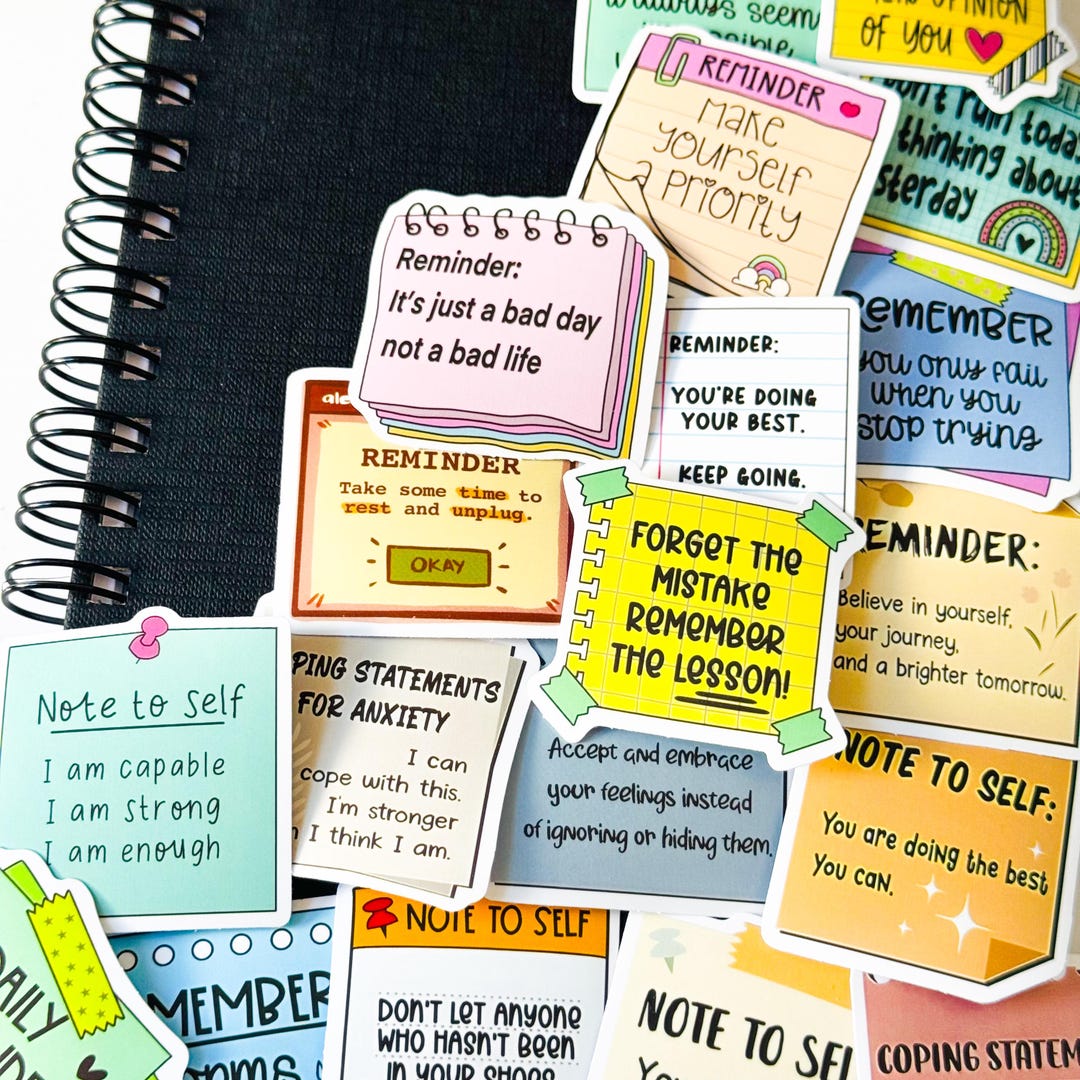 always seem
OPINION
OF YOU
REMINDER
Make
yourself
a priority
today
thinking about
Reminder:
It's just a bad day
not a bad life
REMEMBER
you only fail
when you
stop trying
REMINDER:
YOU'RE DOING
YOUR BEST.
KEEP GOING.
REMINDER
Take some time to
rest and unplug.
OKAY
FORGET THE
MISTAKE
REMEMBER
THE LESSON!
REMINDER:
Believe in yourself,
your journey,
and a brighter tomorrow.
Note to self
I am capable
I am strong
I am enough
PING STATEMENTS
FOR ANXIETY
I can
cope with this.
I'm stronger
I think I am.
Accept and embrace
your feelings instead
of ignoring or hiding them.
NOTE TO SELF:
You are doing the best
you can.
DAILY
MEMBER
NOTE TO SELF
DON'T LET ANYONE
WHO HASN'T BEEN
IN YOUR SHOES
NOTE TO SEL
COPING STATEM